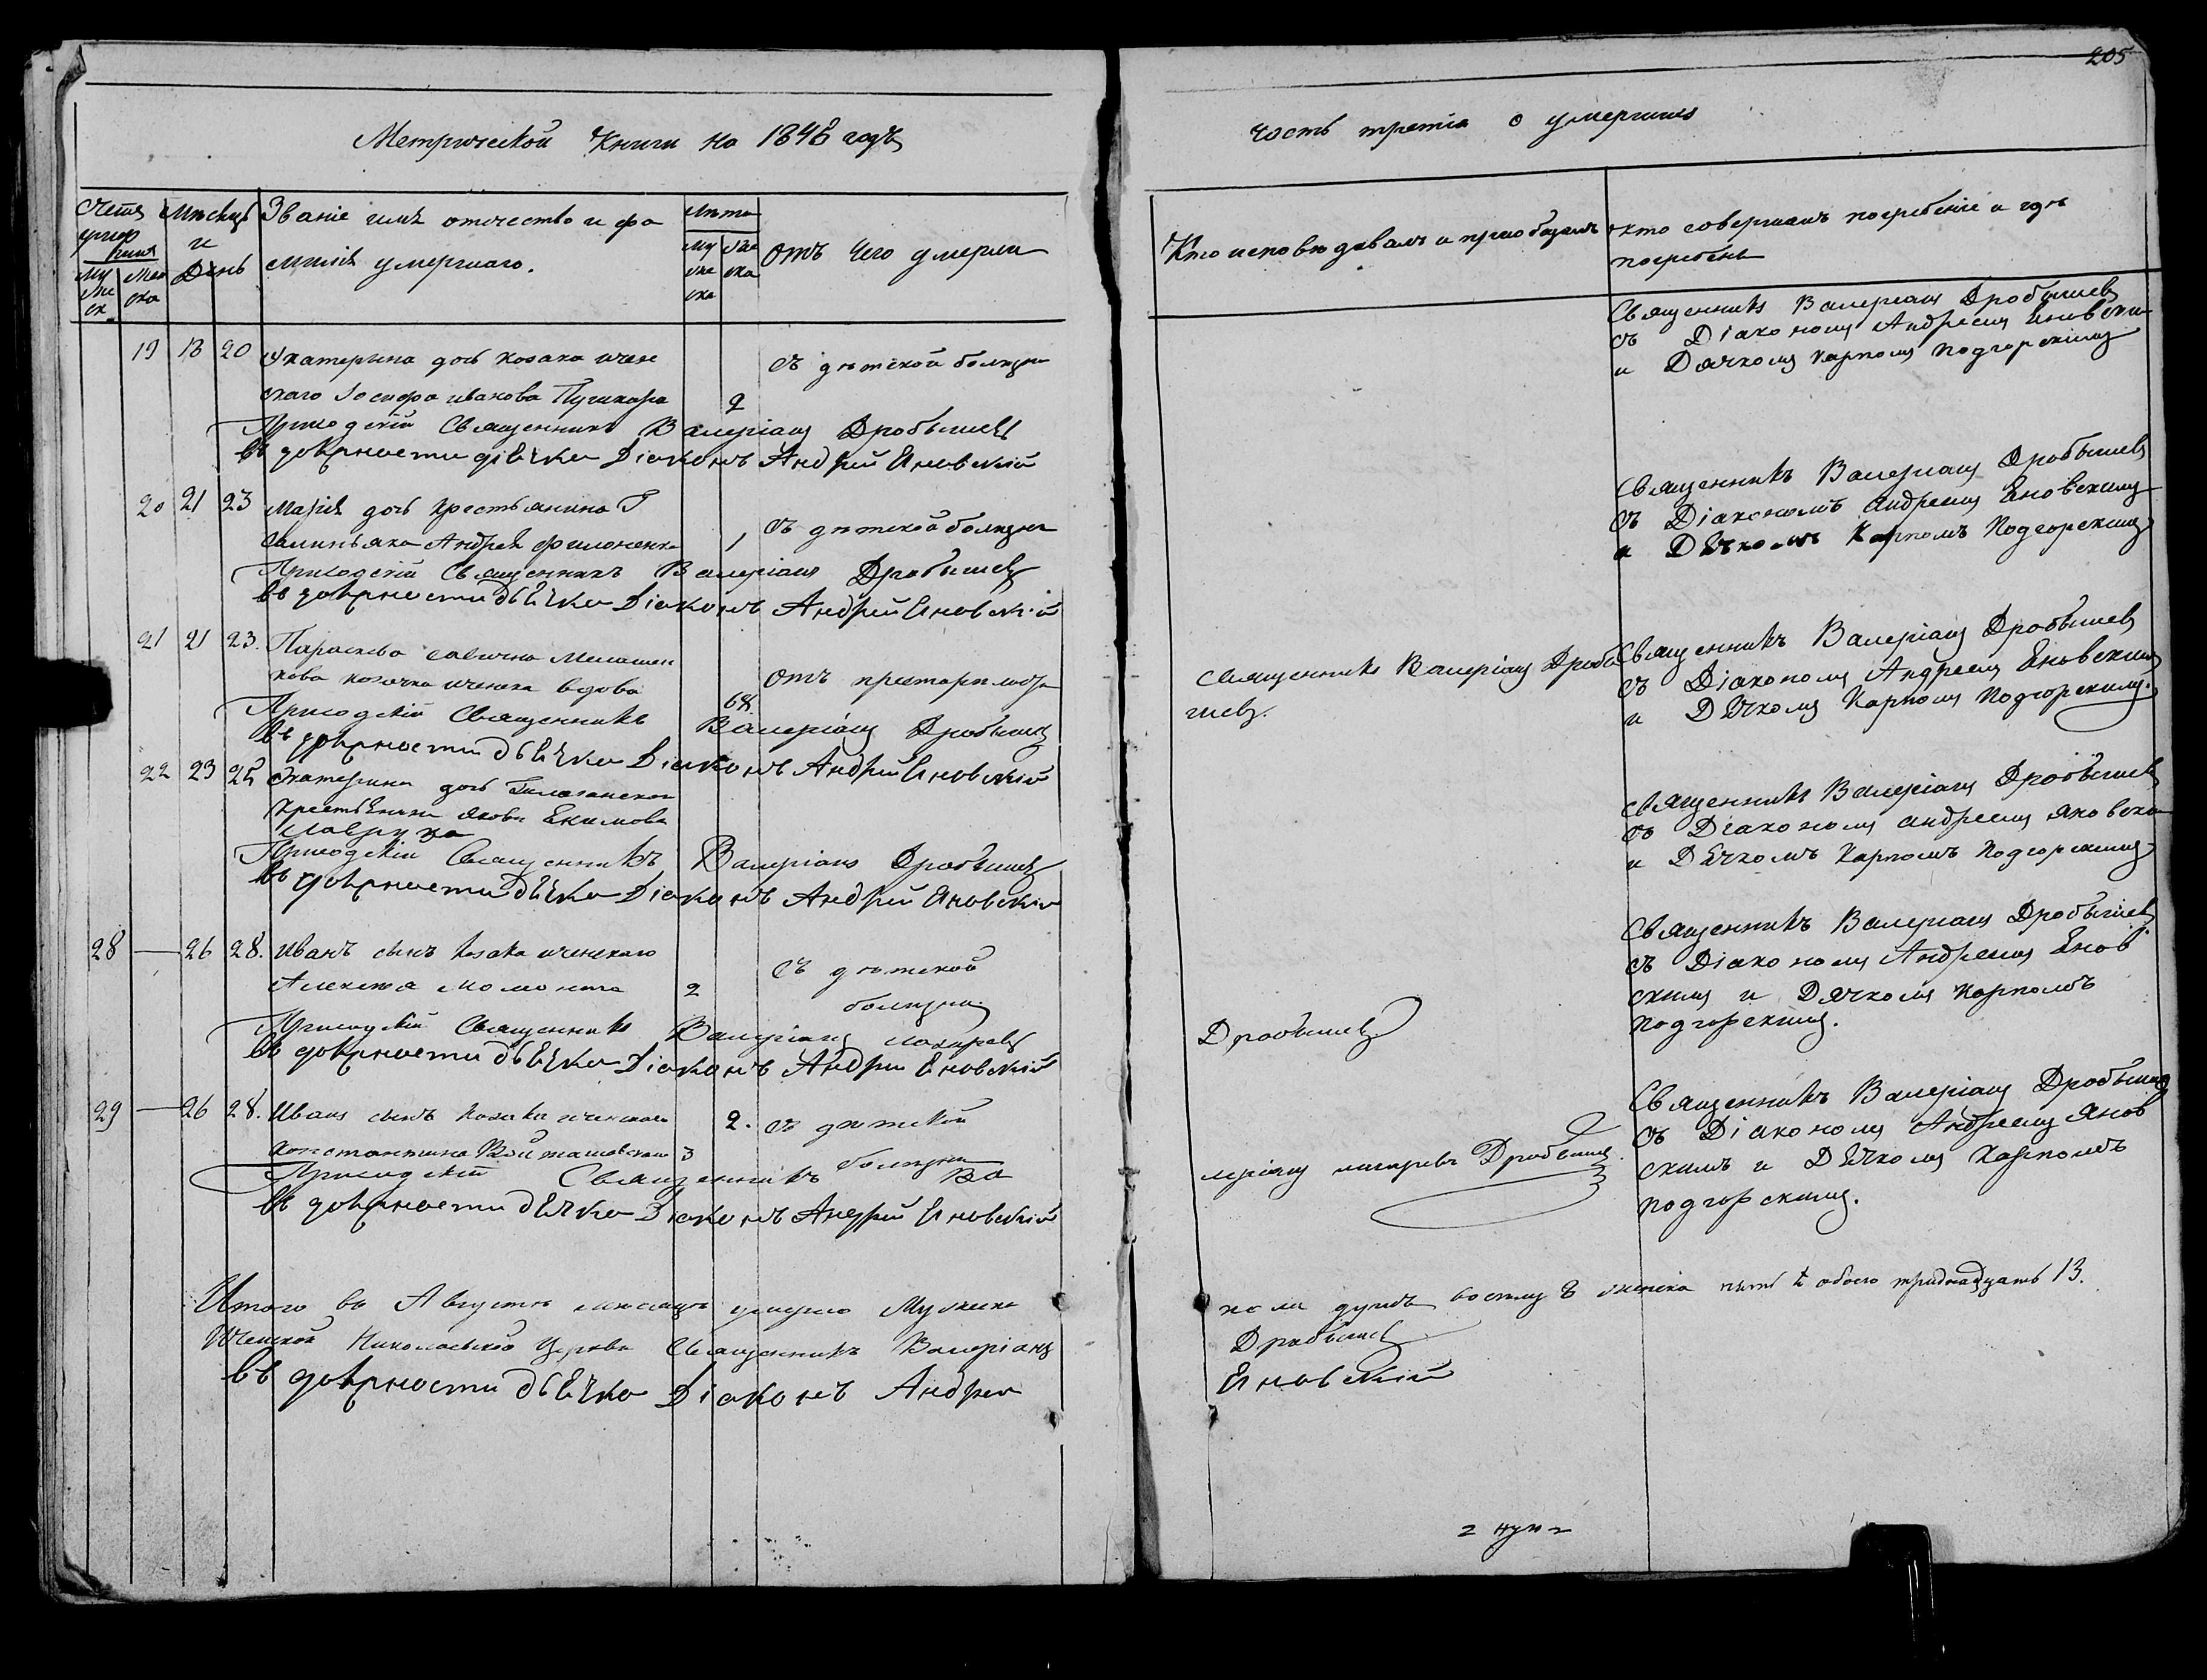 205
Метрической Книги на 1848 годъ
часть третія о умершихъ
Счетъ умер шихъ
Му же ск
Жен ска
Мѣсяцъ и День
Званіе имя отчество и фа
милія умершаго.
Лѣта
Му же ска
Же ска
Отъ Чего умерли
Кто исповѣдавалъ и пріобщалъ
кто совершалъ погребеніе и гдѣ
погребены
19 18 20 Екатерина дочь козака ичен
скаго Іосифа иванова Пушкаря
2
съ дѣтской болѣзни
Приходскій Священникъ Валеріанъ Дробышевъ
въ должности дьячка Діаконъ Андрей Яновскій
Священникъ Валеріанъ Дробышевъ
съ Діакономъ Андреемъ Яновским
и Дячкомъ Карпомъ Подгорскимъ
20 21 23 Марія дочь крестьянина Г
Андрея Филоненка
1
съ дѣтской болѣзни
Приходскій Священникъ Валеріанъ Дробышевъ
въ должности дьячка Діаконъ Андрей Яновскій
Священникъ Валеріанъ Дробышевъ
съ Діакономъ Андреемъ Яновскимъ
и Дячкомъ Карпомъ Подгорскимъ
21 21 23. Параскева савична
козачка вдова
68.
отъ престарѣлости
Приходскій Священникъ Валеріанъ Дробышевъ
въ должности дьячка Діаконъ Андрей Яновскій
Священникъ Валеріанъ Дробы
шевъ.
Священникъ Валеріанъ Дробышевъ
съ Діакономъ Андреемъ Яновскимъ
и Дячкомъ Карпомъ Подгорскимъ.
22 23 25 Екатерина дочь
крестьянина Якова Екимова
Приходскій Священникъ Валеріанъ Дробышевъ
въ должности дьячка Діаконъ Андрей Яновскій
Священникъ Валеріанъ Дробышевъ
съ Діакономъ Андреемъ Яновским
и Дячкомъ Карпомъ Подгорскимъ
28 — 26 28. Иванъ сынъ козака иченскаго
Алексея
2
съ дѣтской
болѣзни
Приходскій Священникъ Валеріанъ
въ должности дьячка Діаконъ Андрей Яновскій
Дробышевъ
Священникъ Валеріанъ Дробышевъ
съ Діакономъ Андреемъ Янов
скимъ и Дячкомъ Карпомъ
подгорскимъ.
29 — 26 28. Иванъ сынъ козака иченскаго
константина
3
2.
съ дѣтской
болѣзни
Приходскій Священникъ Ва
въ должности дьячка Діаконъ Андрей Яновскій
леріанъ Дробышевъ
Священникъ Валеріанъ Дробышевъ
съ Діакономъ Андреемъ Янов
скимъ и Дячкомъ Карпомъ
подгорскимъ.
Итого въ Августѣ мѣсяцѣ умерло Мужска
го пола душъ восемь 8 женска пять обоего тринадцать 13.
Иченской Николаевской Церкви Священникъ Валеріанъ
Дробышевъ
въ должности дьячка Діаконъ Андрей
Яновскій